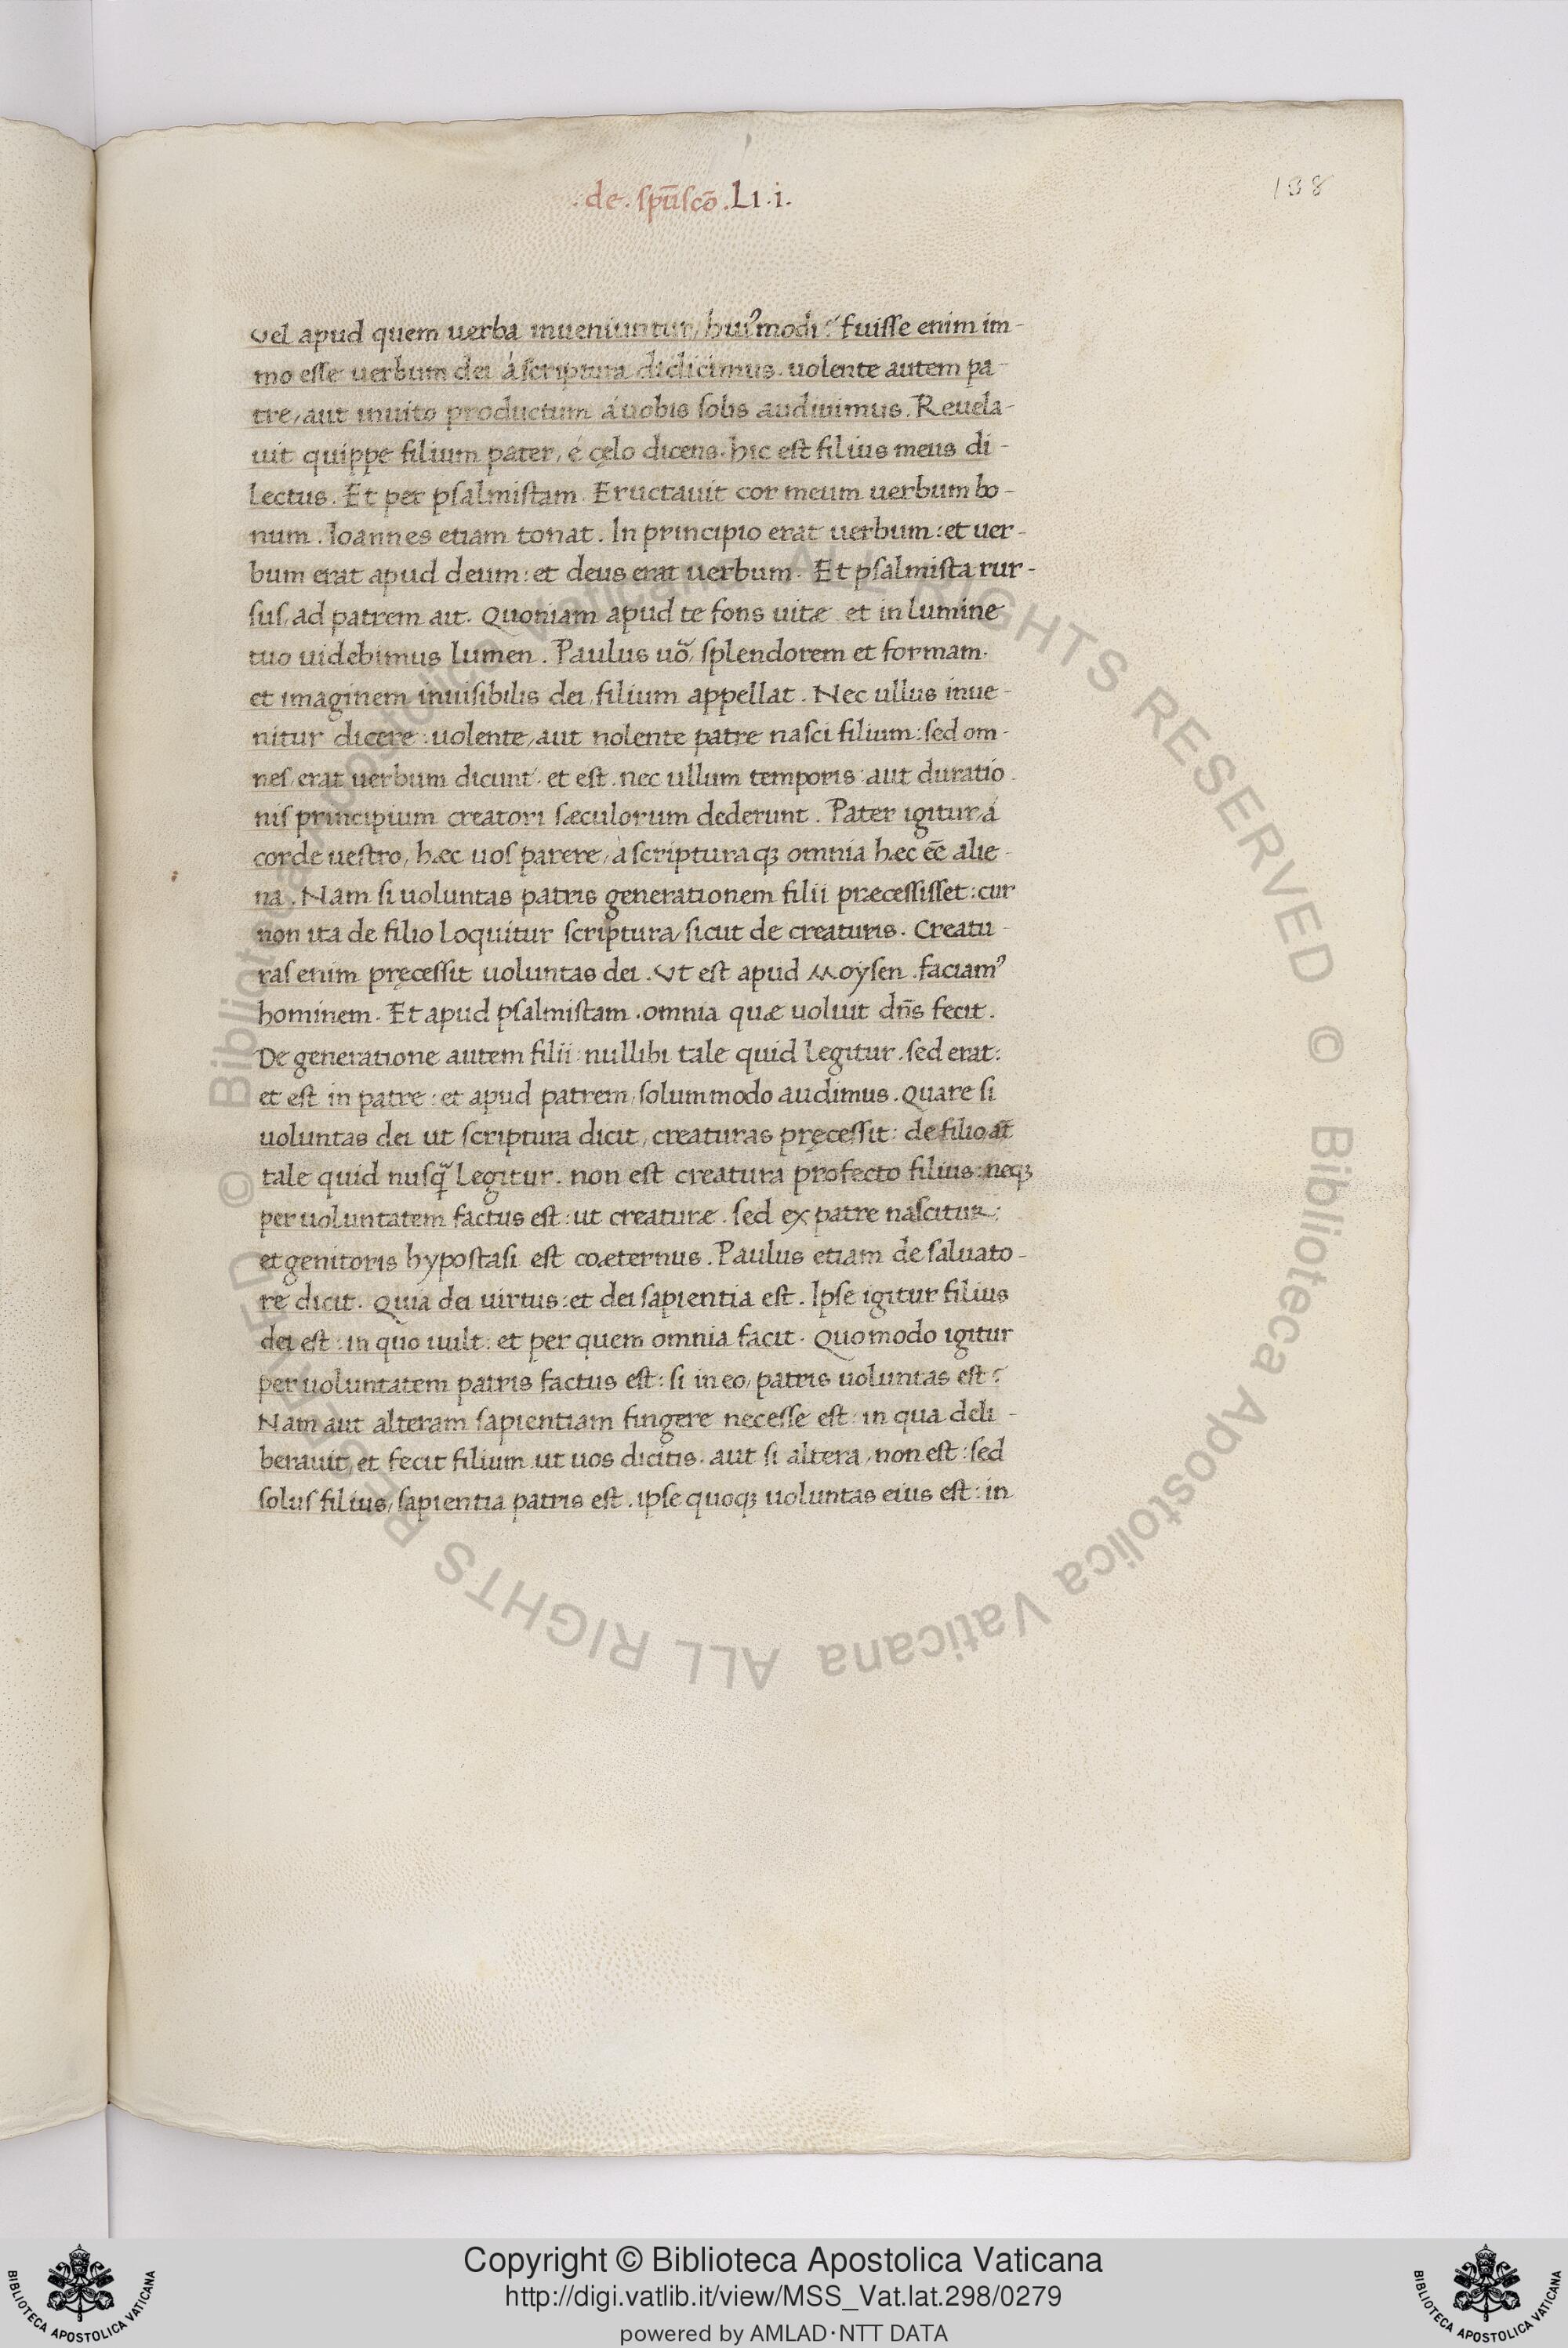 .de.spūscō.Li.i.
108
vel apud quem uerba inueniuntur, huiꝰmodi? fuisse enim im-
mo esse uerbum dei à scriptura didicimus. uolente autem pa-
tre, aut inuito productum á uobis solis audiuimus. Reuela-
uit quippe filium pater, é cęlo dicens. hic est filius meus di-
lectus. Et per psalmistam. Eructauit cor meum uerbum bo-
num. Ioannes etiam tonat. In principio erat uerbum: et uer-
bum erat apud deum: et deus erat uerbum. Et psalmista rur-
sus, ad patrem ait. Quoniam apud te fons uitæ et in lumine
tuo uidebimus lumen. Paulus uõ, splendorem et formam.
et imaginem inuisibilis dei, filium appellat. Nec ullus inue-
nitur dicere: uolente, aut nolente patre nasci filium: sed om-
nes, erat uerbum dicunt. et est. nec ullum temporis: aut duratio-
nis principium creatori sæculorum dederunt. Pater igitur á
corde uestro, hæc uos parere, à scripturaqꝫ omnia hæc eē alie-
na. Nam si uoluntas patris generationem filii præcessisset: cur
non ita de filio loquitur scriptura, sicut de creaturis. Creatu-
ras enim pręcessit uoluntas dei. Vt est apud Moysen. faciamꝰ
hominem. Et apud psalmistam. omnia quæ uoluit dñs fecit.
De generatione autem filii: nullibi tale quid legitur. sed erat:
et est in patre: et apud patrem, solummodo audimus. Quare si
uoluntas dei ut scriptura dicit, creaturas pręcessit: de filio aūt
tale quid nusq̃ legitur. non est creatura profecto filius: neqꝫ
per uoluntatem factus est: ut creaturæ. sed ex patre nascitur:
et genitoris hypostasi est coæternus. Paulus etiam de saluato-
re dicit. Quia dei uirtus: et dei sapientia est. Ipse igitur filius
dei est: in quo uult: et per quem omnia facit. Quomodo igitur
per uoluntatem patris factus est: si in eo, patris uoluntas est?
Nam aut alteram sapientiam fingere necesse est: in qua deli-
berauit, et fecit filium ut uos dicitis. aut si altera, non est: sed
solus filius, sapientia patris est. ipse quoqꝫ uoluntas eius est: in
© Biblioteca Apostolica Vaticana ALL RIGHTS RESERVED
© Biblioteca Apostolica Vaticana ALL RIGHTS RESERVED
Copyright © Biblioteca Apostolica Vaticana
http://digi.vatlib.it/view/MSS_Vat.lat.298/0279
powered by AMLAD·NTT DATA
BIBLIOTECA APOSTOLICA VATICANA
BIBLIOTECA APOSTOLICA VATICANA